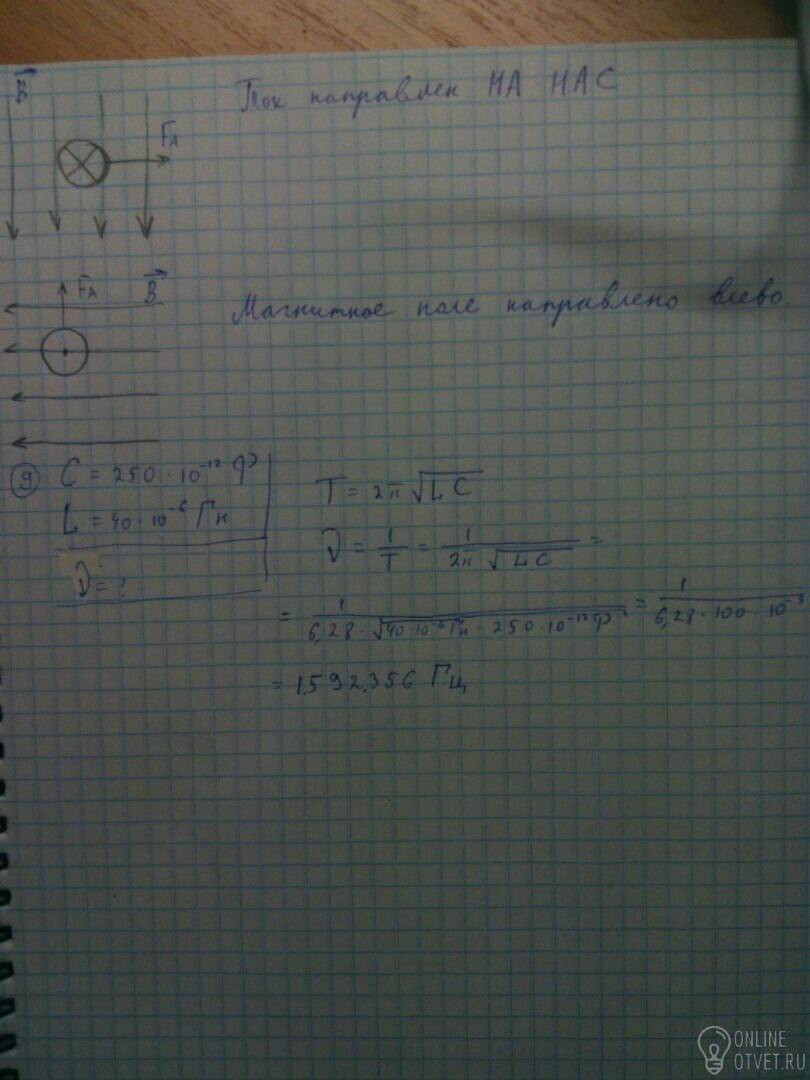 B
Ток направлен НА НАС
FА
FА B
Магнитное поле направлено влево.
9 C = 250 · 10⁻¹² Ф
L = 40 · 10⁻⁶ Гн
ν = ?
T = 2π √LC
ν = 1/T = 1/(2π √LC) =
= 1/(6,28 · √(40 · 10⁻⁶ Гн · 250 · 10⁻¹² Ф)) = 1/(6,28 · 100 · 10⁻⁹)
= 1.592.356 Гц
ONLINE
OTVET.RU